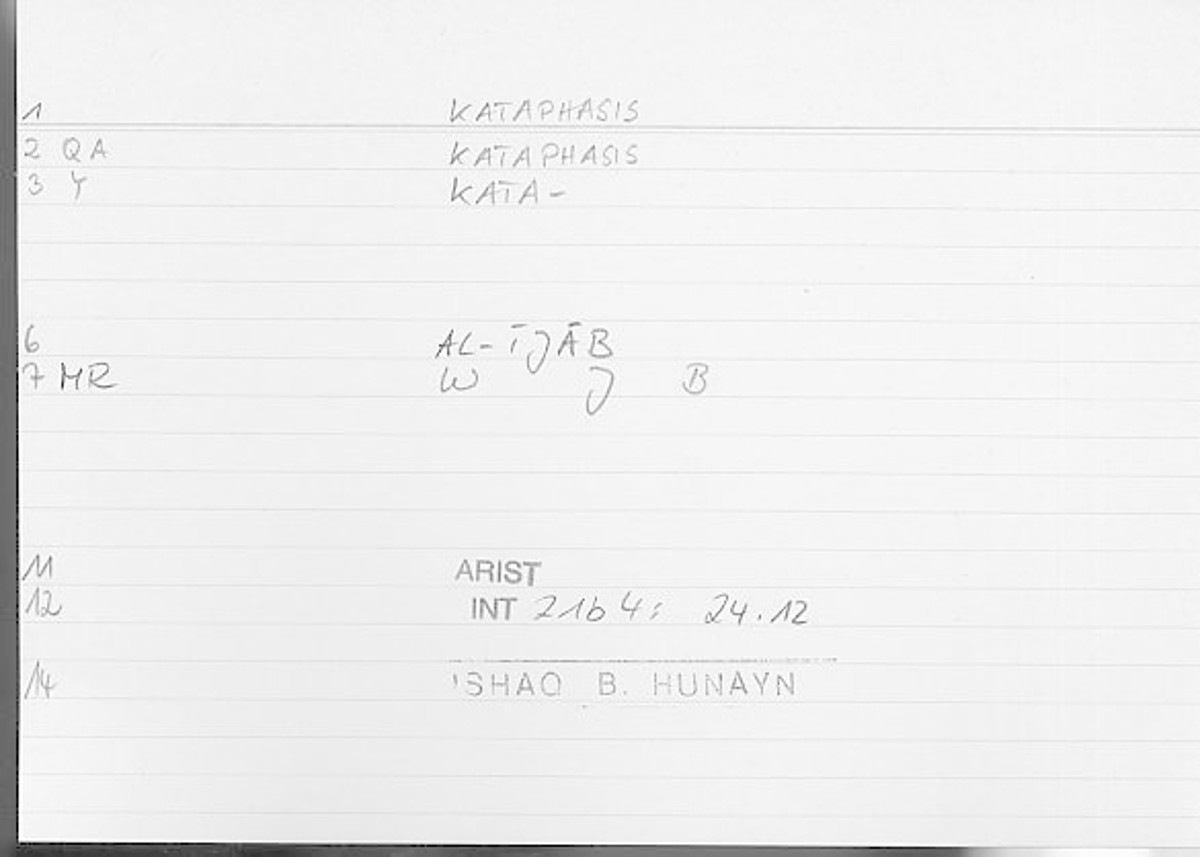 1 KATAPHASIS
2 QA KATAPHASIS
3 Y KATA-
6 AL-ĪJĀB
7 MR W J B
11 ARIST
12 INT 21b4: 24.12
14 ISHAQ B. HUNAYN